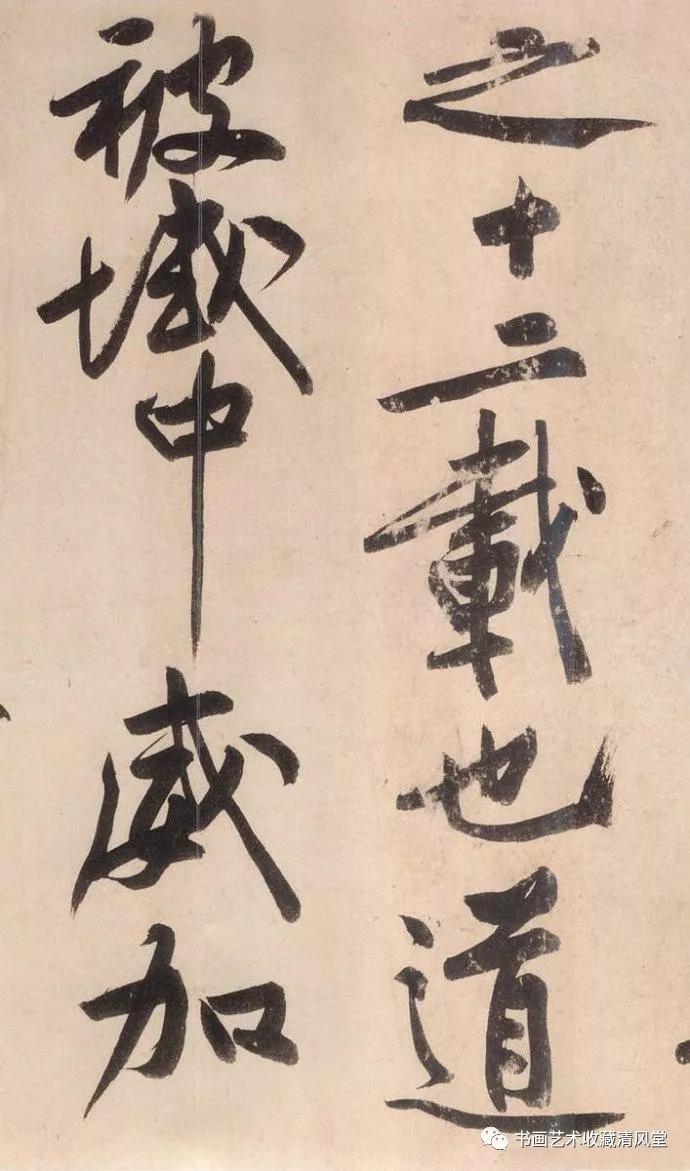 之十二載也道
被域中威加
书画艺术收藏清风堂